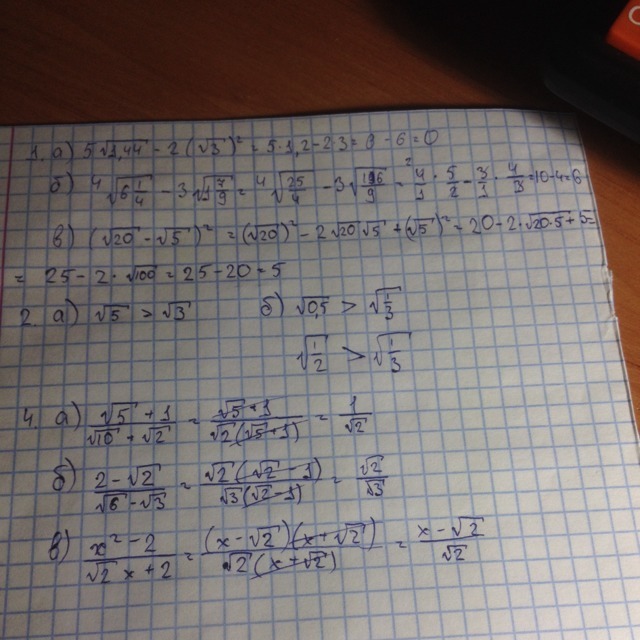 1. а) 5√1,44 - 2(√3)² = 5·1,2-2·3 = 6 - 6 = 0
б) 4√6 1/4 - 3√1 7/9 = 4√25/4 - 3√16/9 = 4/1 · 5/2 - 3/1 · 4/3 = 10-4=6
в) (√20 - √5)² = (√20)² - 2√20√5 + (√5)² = 20 - 2·√20·5 + 5
= 25 - 2·√100 = 25 - 20 = 5
2. а) √5 > √3 б) √0,5 > √1/3
√1/2 > √1/3
4. а) (√5 + 1)/(√10 + √2) = (√5 + 1)/(√2(√5+1)) = 1/√2
б) (2 - √2)/(√6 - √3) = (√2(√2 - 1))/(√3(√2 - 1)) = √2/√3
в) (x² - 2)/(√2 x + 2) = ((x - √2)(x + √2))/(√2(x + √2)) = (x - √2)/√2